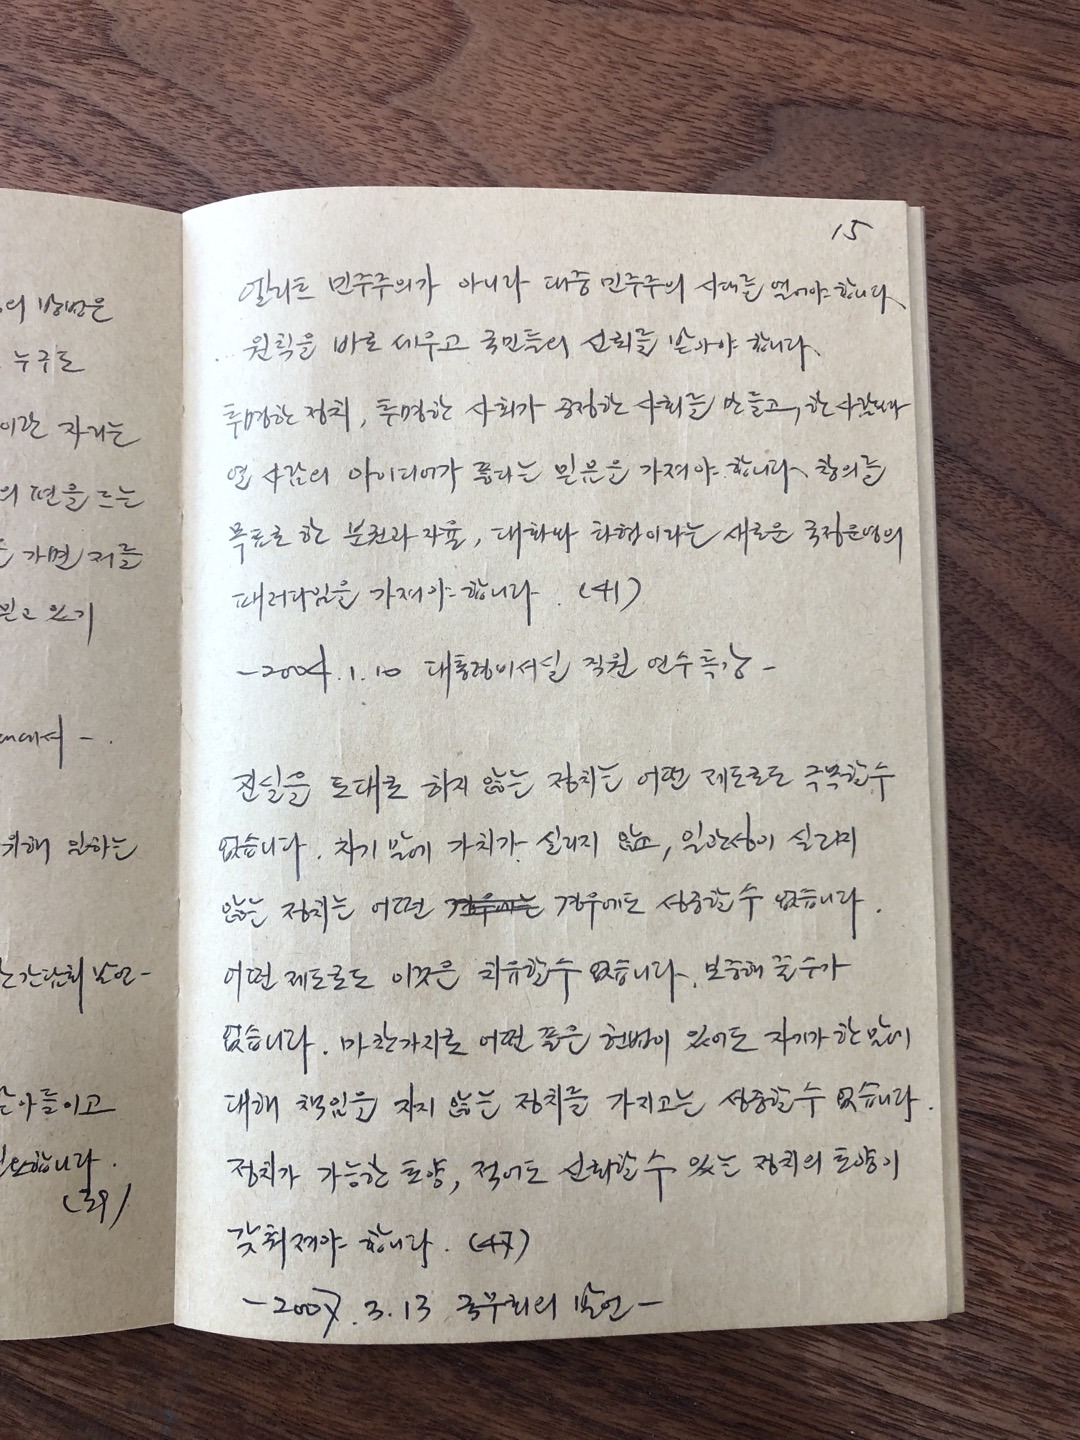 의 방법은
누구도
이란 자리는
의 편을 드는
가면 저를
믿고 있기
에서 -.
위해 원하는
간담회 발언-
받아들이고
필요합니다.
(39)
15
엘리트 민주주의가 아니라 대중 민주주의 시대를 열어야 합니다.
원칙을 바로 세우고 국민들의 신뢰를 받아야 합니다.
투명한 정치, 투명한 사회가 공정한 사회를 만들고, 한 사람보다
열 사람의 아이디어가 좋다는 믿음을 가져야 합니다. 창의를
목표로 한 분권과 자율, 대화와 타협이라는 새로운 국정운영의
패러다임을 가져야 합니다. (41)
-2004.1.10 대통령비서실 직원 연수특강-
진실을 토대로 하지 않는 정치는 어떤 제도로도 극복할 수
없습니다. 자기 말에 가치가 실리지 않고, 일관성이 실리지
않는 정치는 어떤 경우에는 경우에도 성공할 수 없습니다.
어떤 제도로도 이것은 치유할 수 없습니다. 보충해 줄 수가
없습니다. 마찬가지로 어떤 좋은 헌법이 있어도 자기가 한 말에
대해 책임을 지지 않는 정치를 가지고는 성공할 수 없습니다.
정치가 가능한 토양, 적어도 신뢰할 수 있는 정치의 토양이
갖춰져야 합니다. (47)
-2007.3.13 국무회의 발언-